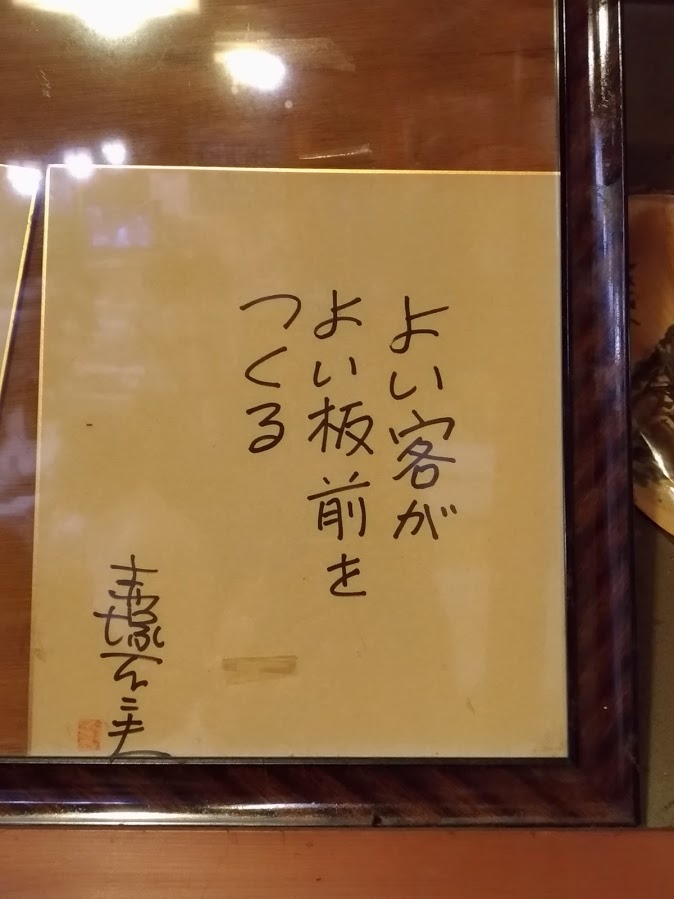 よい客が
よい板前を
つくる
赤塚不二夫